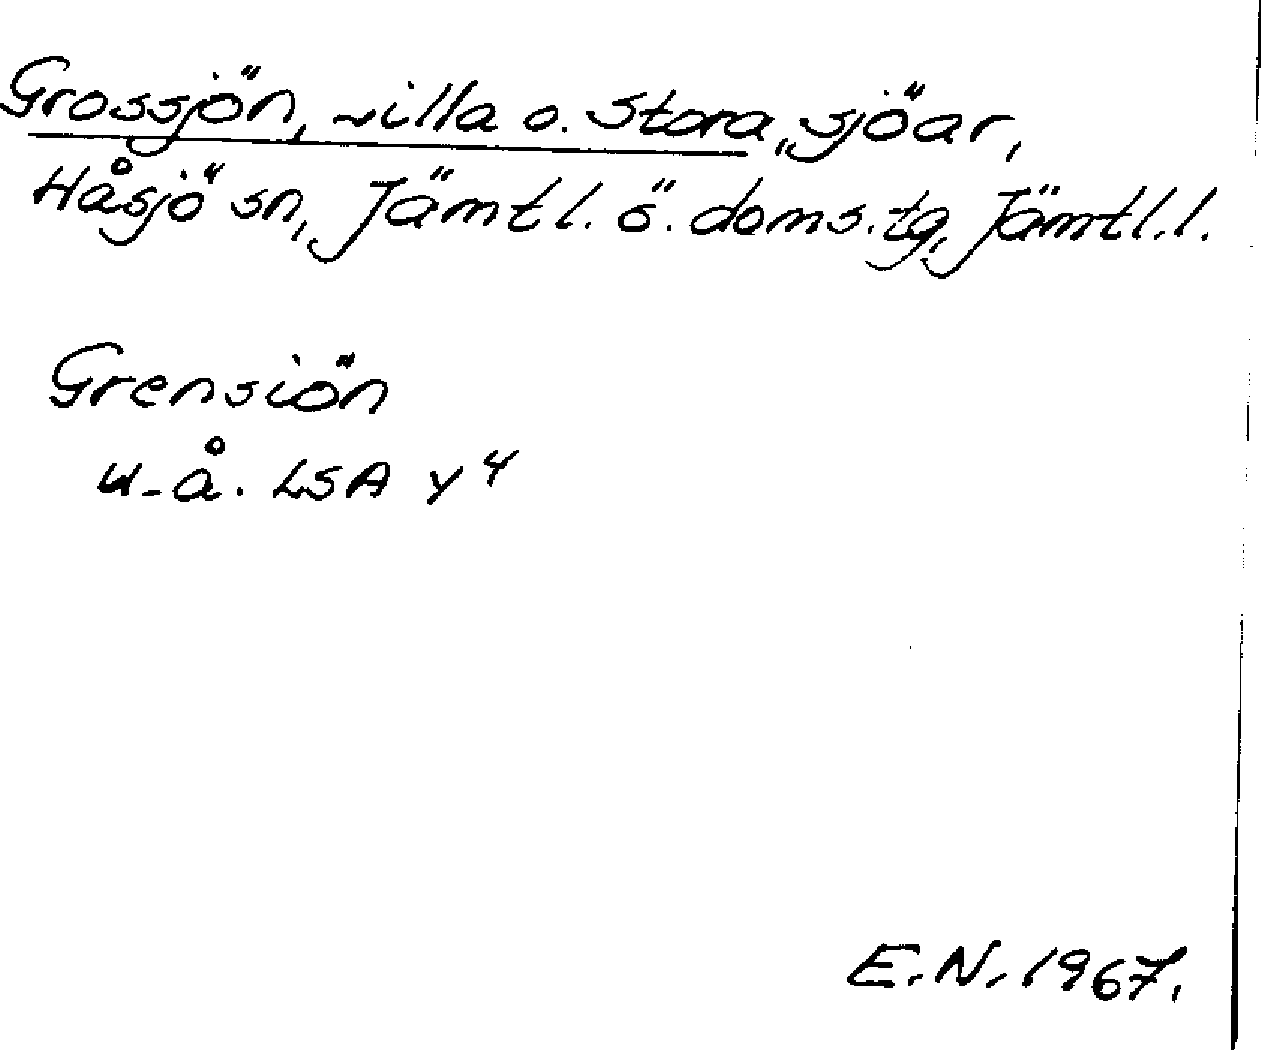 Grossjön, villa o. Stora, sjöar,
Håsjö sn, Jämtl. ö. doms.tg, Jämtl.l.
Grensiön
u.å. LSA Y 4
E.N. 1967.